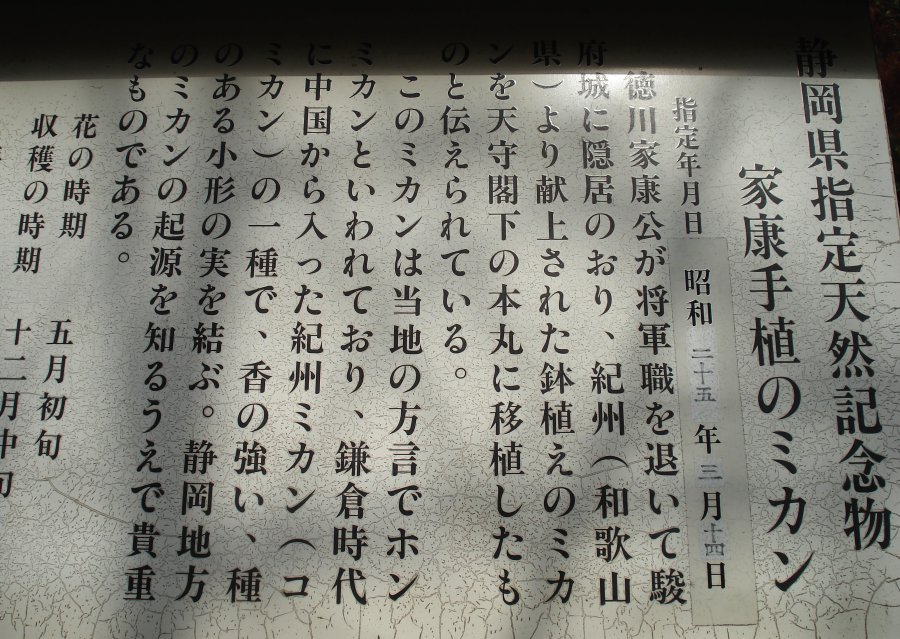 静岡県指定天然記念物
家康手植のミカン
指定年月日 昭和二十五年三月十四日
徳川家康公が将軍職を退いて駿
府城に隠居のおり、紀州(和歌山
県)より献上された鉢植えのミカ
ンを天守閣下の本丸に移植したも
のと伝えられている。
このミカンは当地の方言でホン
ミカンといわれており、鎌倉時代
に中国から入った紀州ミカン(コ
ミカン)の一種で、香の強い、種
のある小形の実を結ぶ。静岡地方
のミカンの起源を知るうえで貴重
なものである。
花の時期 五月初旬
収穫の時期 十二月中旬